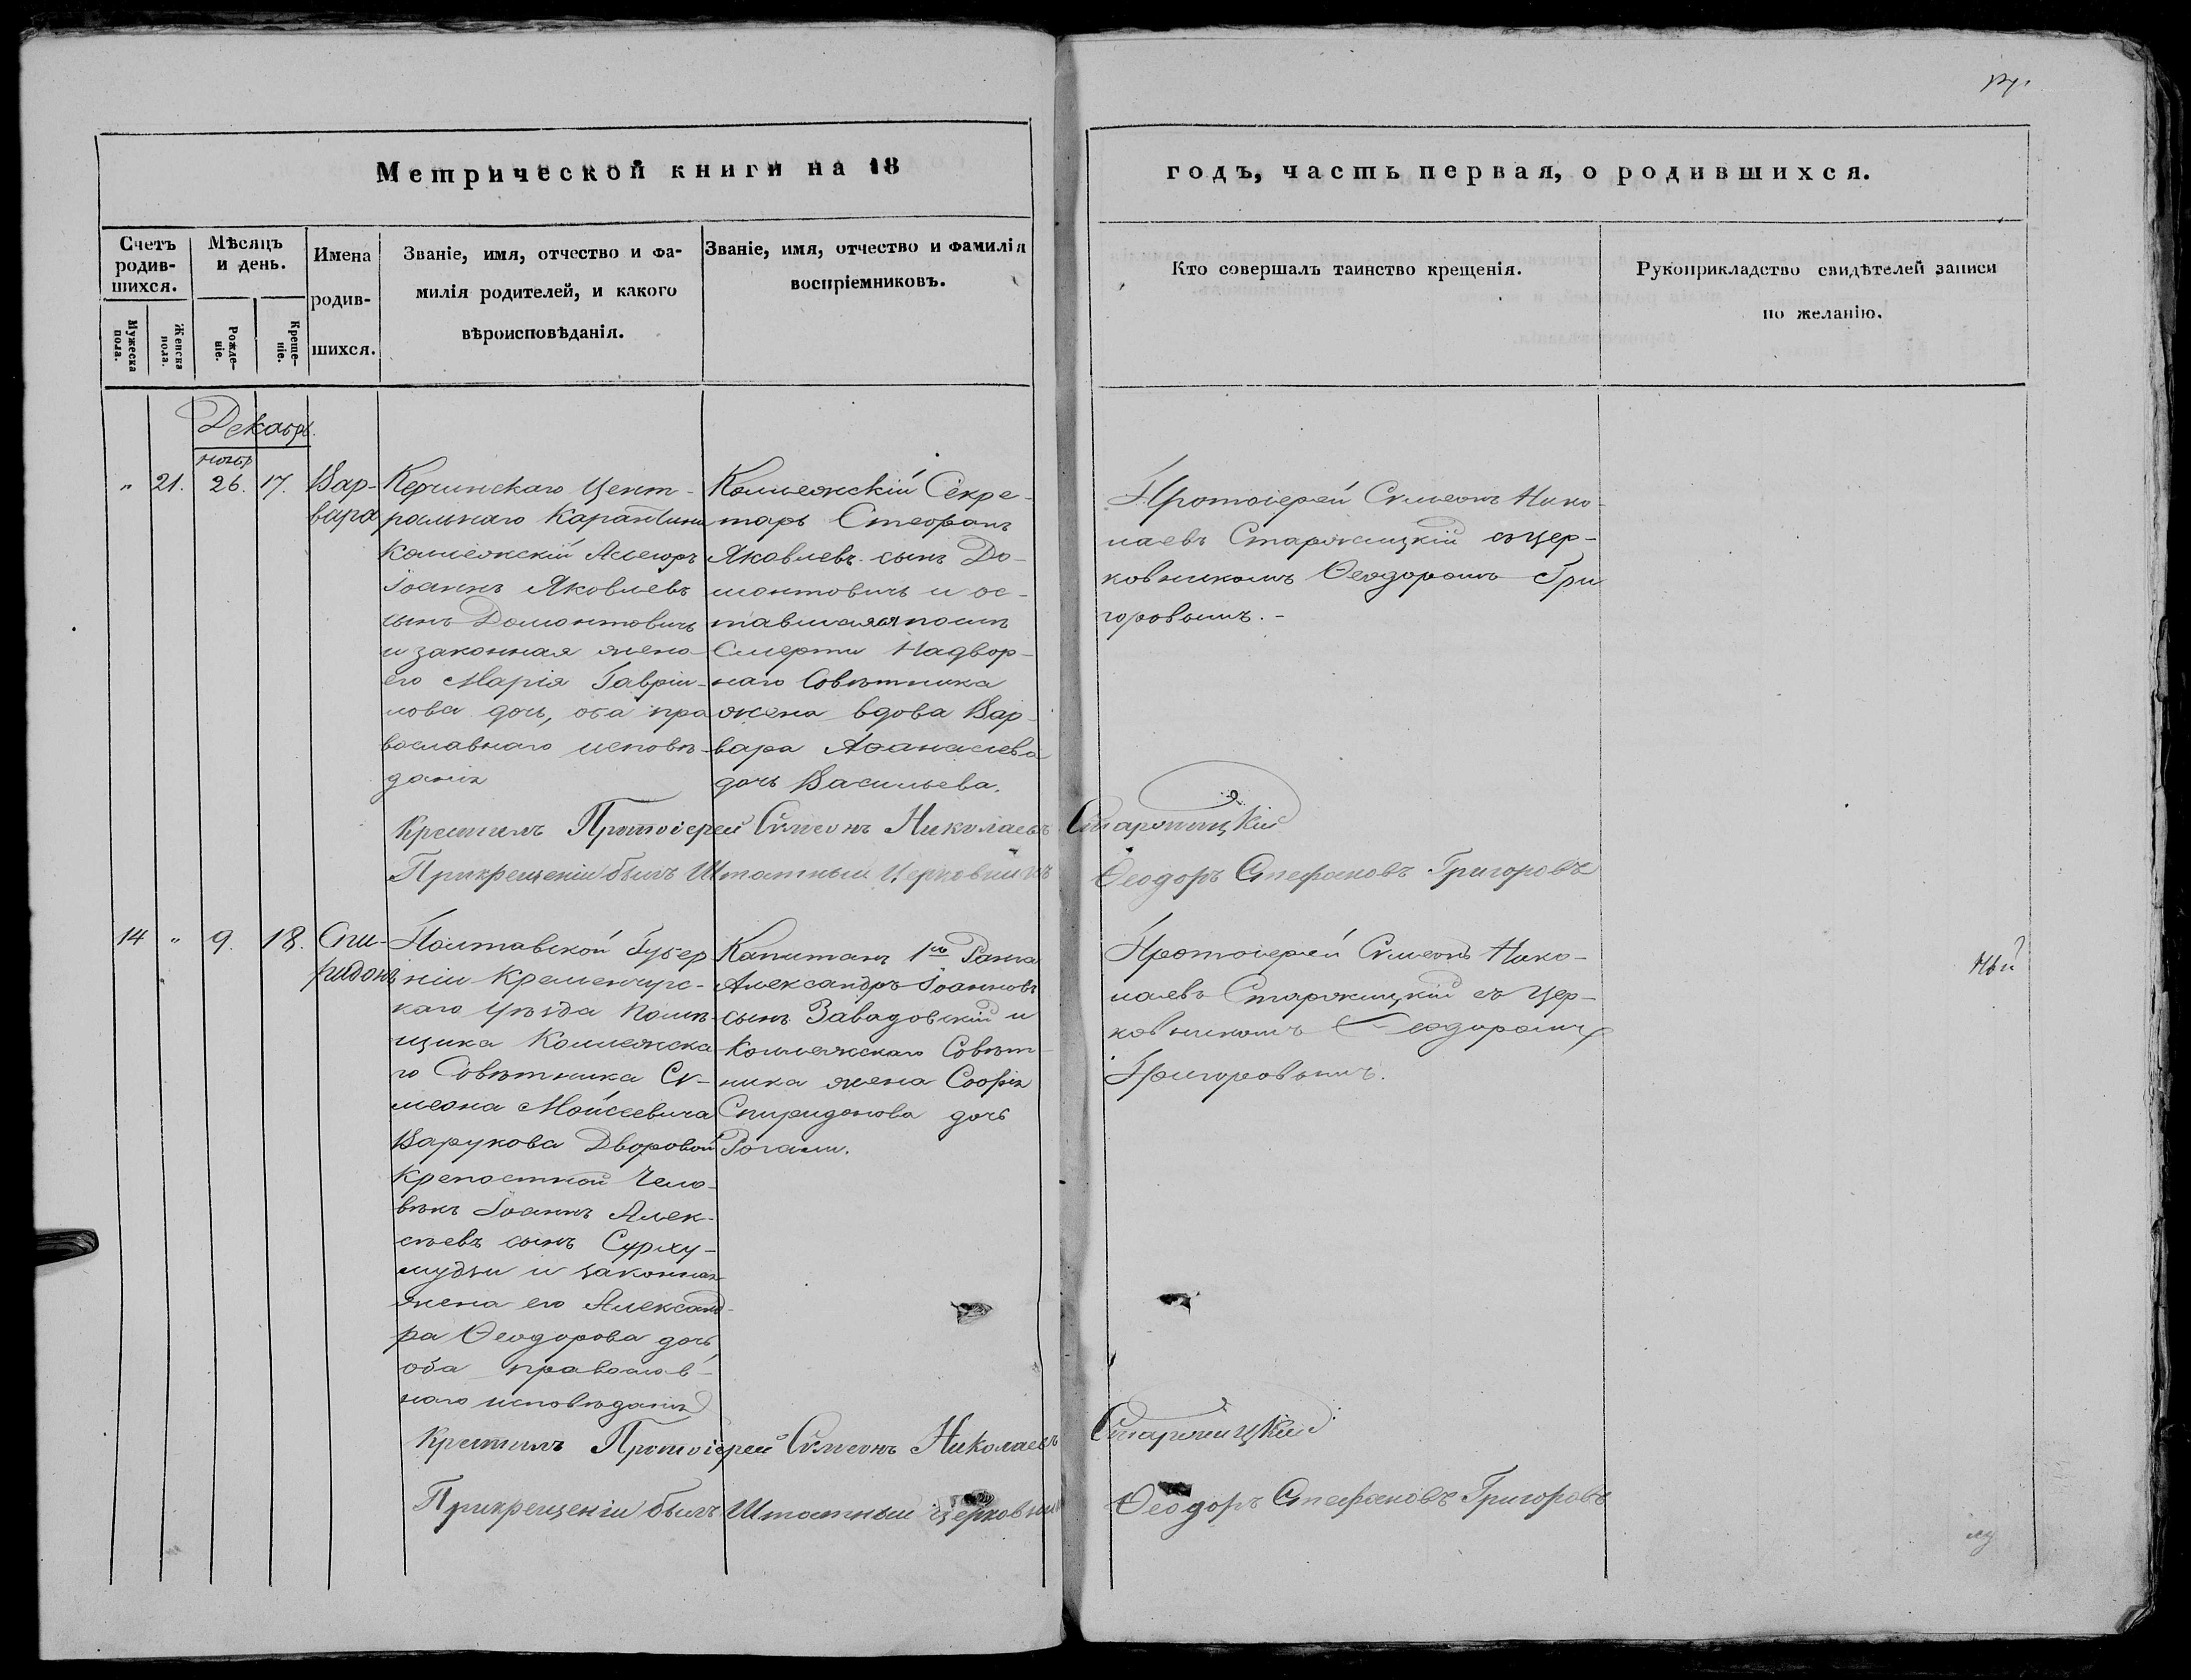 Метрической книги на 18
годъ, часть первая, о родившихся.
Счетъ родив-шихся.
Мужеска пола.
Женска пола.
Мѣсяцъ и день.
Рожде-ніе.
Креще-ніе.
Имена
родив-
шихся.
Званіе, имя, отчество и фа-
милія родителей, и какого
вѣроисповѣданія.
Званіе, имя, отчество и фамилія
воспріемниковъ.
Кто совершалъ таинство крещенія.
Рукоприкладство свидѣтелей записи
по желанію.
Декабрь.
ноябр
" 21. 26. 17.
Вар-
вара
Керчинскаго Цент-
ральнаго Карантина
Коллежскій Асесоръ
Іоаннъ Яковлевъ
сынъ Домонтовичъ
и законная жена
его Марія Гаврии-
лова дочь, оба пра
вославнаго исповѣ-
данія
Коллежскій Секре-
тарь Стефанъ
Яковлевъ сынъ До-
монтовичъ и ос-
тавшаяся послѣ
Смерти Надвор-
наго Совѣтника
жена вдова Вар-
вара Аѳанасіева
дочь Васильева.
Протоіерей Сѵмеонъ Нико-
лаевъ Старожицкій съ Цер-
ковникомъ Ѳеодоромъ Гри
горовымъ.-
Крестилъ Протоіерей Сѵмеонъ Николаевъ Старожицкій
При крещеніи былъ Штатный Церковникъ Ѳеодоръ Стефановъ Григоровъ
14 " 9. 18.
Спи-
ридонъ
Полтавской Губер
ніи Кременчугс-
каго Уѣзда Помѣ-
щика Коллежска
го Совѣтника Сѵ-
меона Мойсеевича
Варукова Дворовой
Крепостной Чело-
вѣкъ Іоаннъ Алек-
сѣевъ сынъ
и законная
жена его Александ-
ра Ѳеодорова дочь,
оба православ-
наго исповѣданія
Капитанъ 1го Ранга
Александръ Іоанновъ
сынъ Завадовскій и
Коллежскаго Совѣт-
ника жена Софія
Спиридонова дочь
Рогали.
Протоіерей Сѵмеонъ Нико-
лаевъ Старожицкій съ Цер-
ковникомъ Ѳеодоромъ
Григоровымъ.
ный
Крестилъ Протоіерей Сѵмеонъ Николаевъ Старожицкій
При крещеніи былъ Штатный Церковник Ѳеодоръ Стефановъ Григоровъ